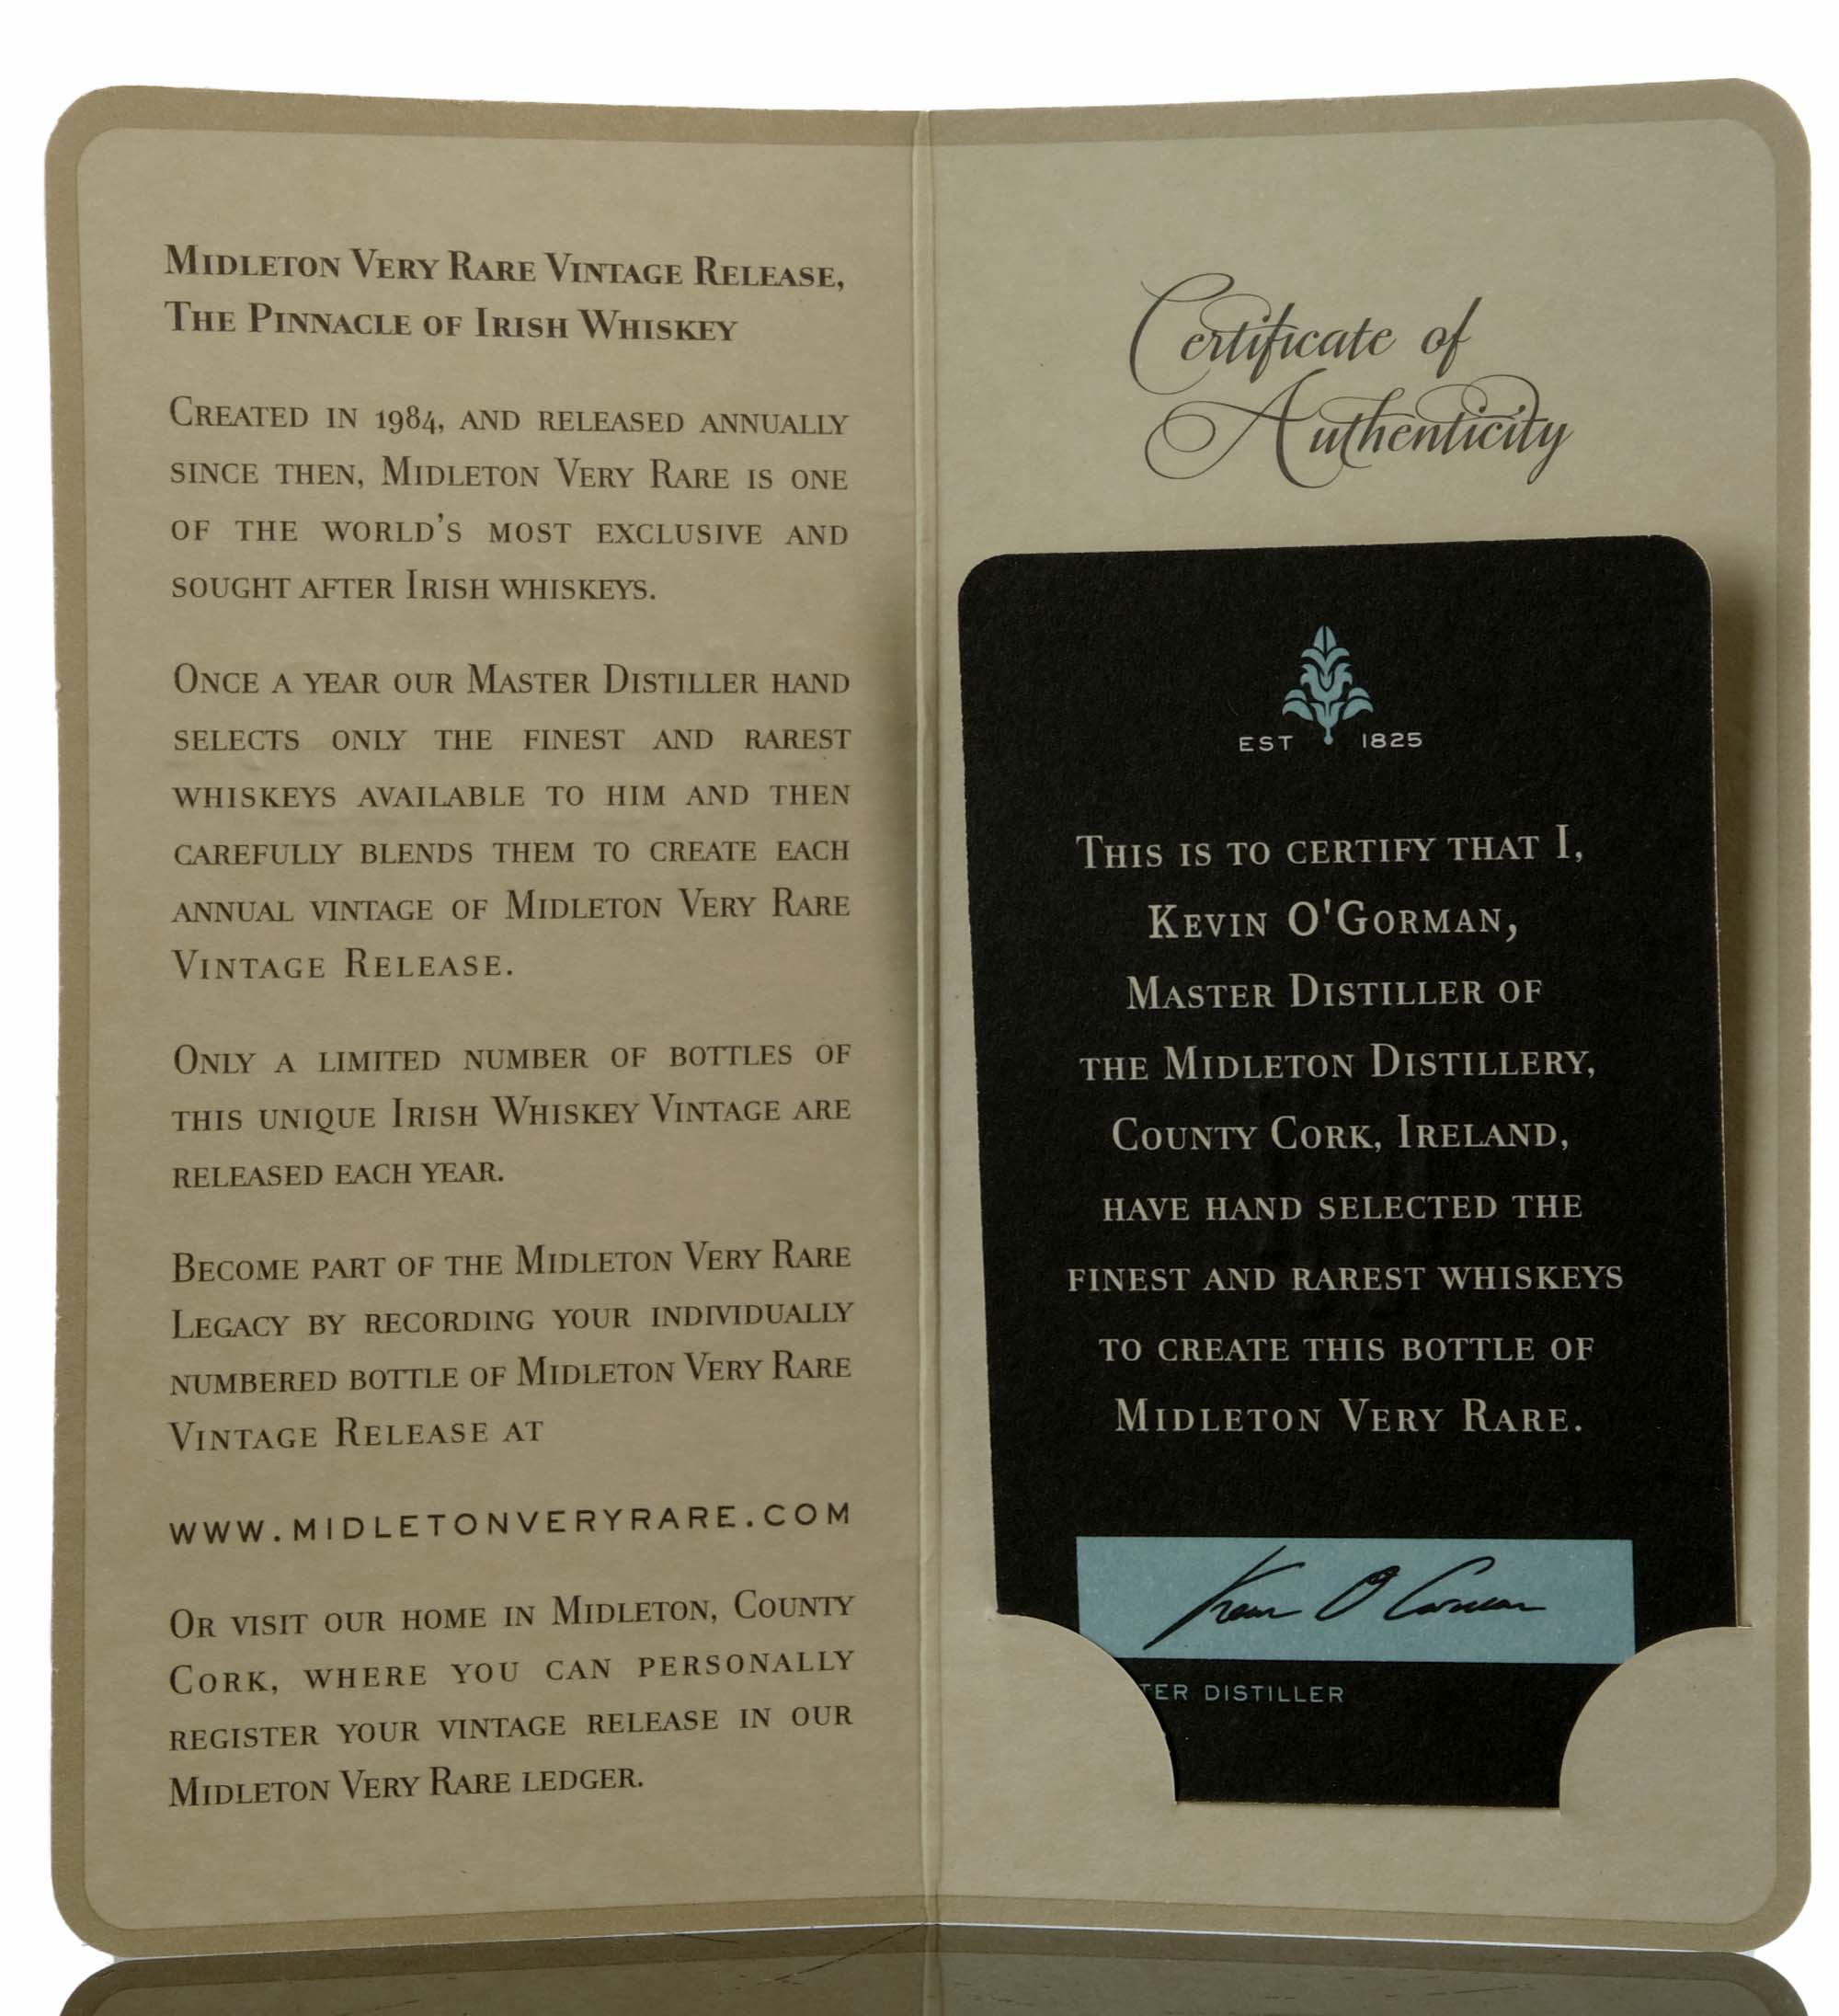 Midleton Very Rare Vintage Release,
The Pinnacle of Irish Whiskey
Created in 1984, and released annually
since then, Midleton Very Rare is one
of the world's most exclusive and
sought after Irish whiskeys.
Once a year our Master Distiller hand
selects only the finest and rarest
whiskeys available to him and then
carefully blends them to create each
annual vintage of Midleton Very Rare
Vintage Release.
Only a limited number of bottles of
this unique Irish Whiskey Vintage are
released each year.
Become part of the Midleton Very Rare
Legacy by recording your individually
numbered bottle of Midleton Very Rare
Vintage Release at
WWW.MIDLETONVERYRARE.COM
Or visit our home in Midleton, County
Cork, where you can personally
register your vintage release in our
Midleton Very Rare ledger.
Certificate of
Authenticity
EST 1825
This is to certify that I,
Kevin O'Gorman,
Master Distiller of
the Midleton Distillery,
County Cork, Ireland,
have hand selected the
finest and rarest whiskeys
to create this bottle of
Midleton Very Rare.
Kevin O'Gorman
TER DISTILLER